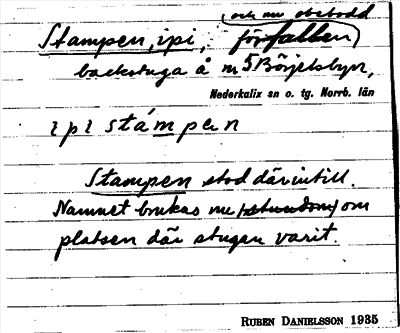 (och nu obebodd
Stampen, ipi, förfallen)
backstuga å nr 5 Börjelsbyn,
Nederkalix sn o. tg. Norrb. län
ipi stámpen
Stampen stod därintill.
Namnet brukas nu (stundom) om
platsen där stugan varit.
RUBEN DANIELSSON 1935